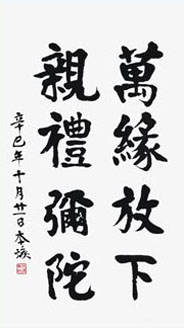 萬緣放下
親禮彌陀
辛巳年十月廿一日本煥